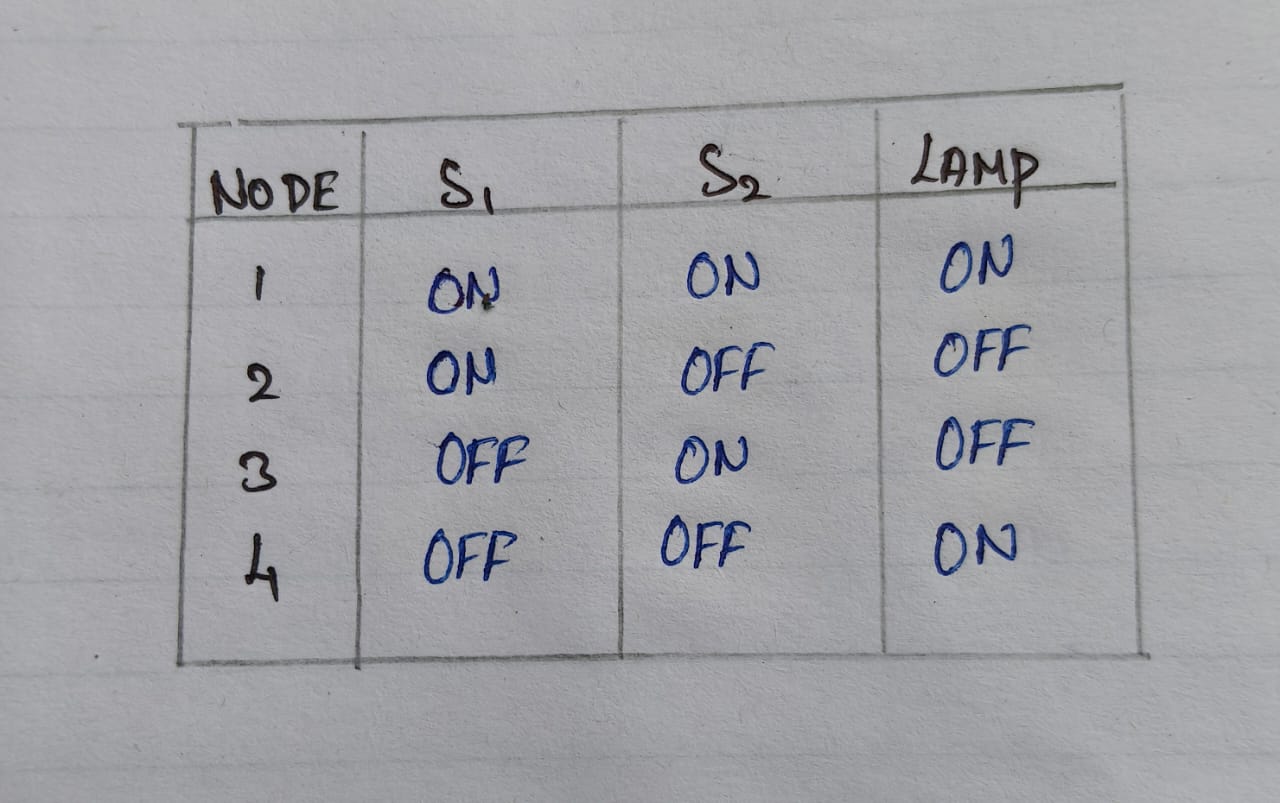 NODE S₁ S₂ LAMP
1 ON ON ON
2 ON OFF OFF
3 OFF ON OFF
4 OFF OFF ON